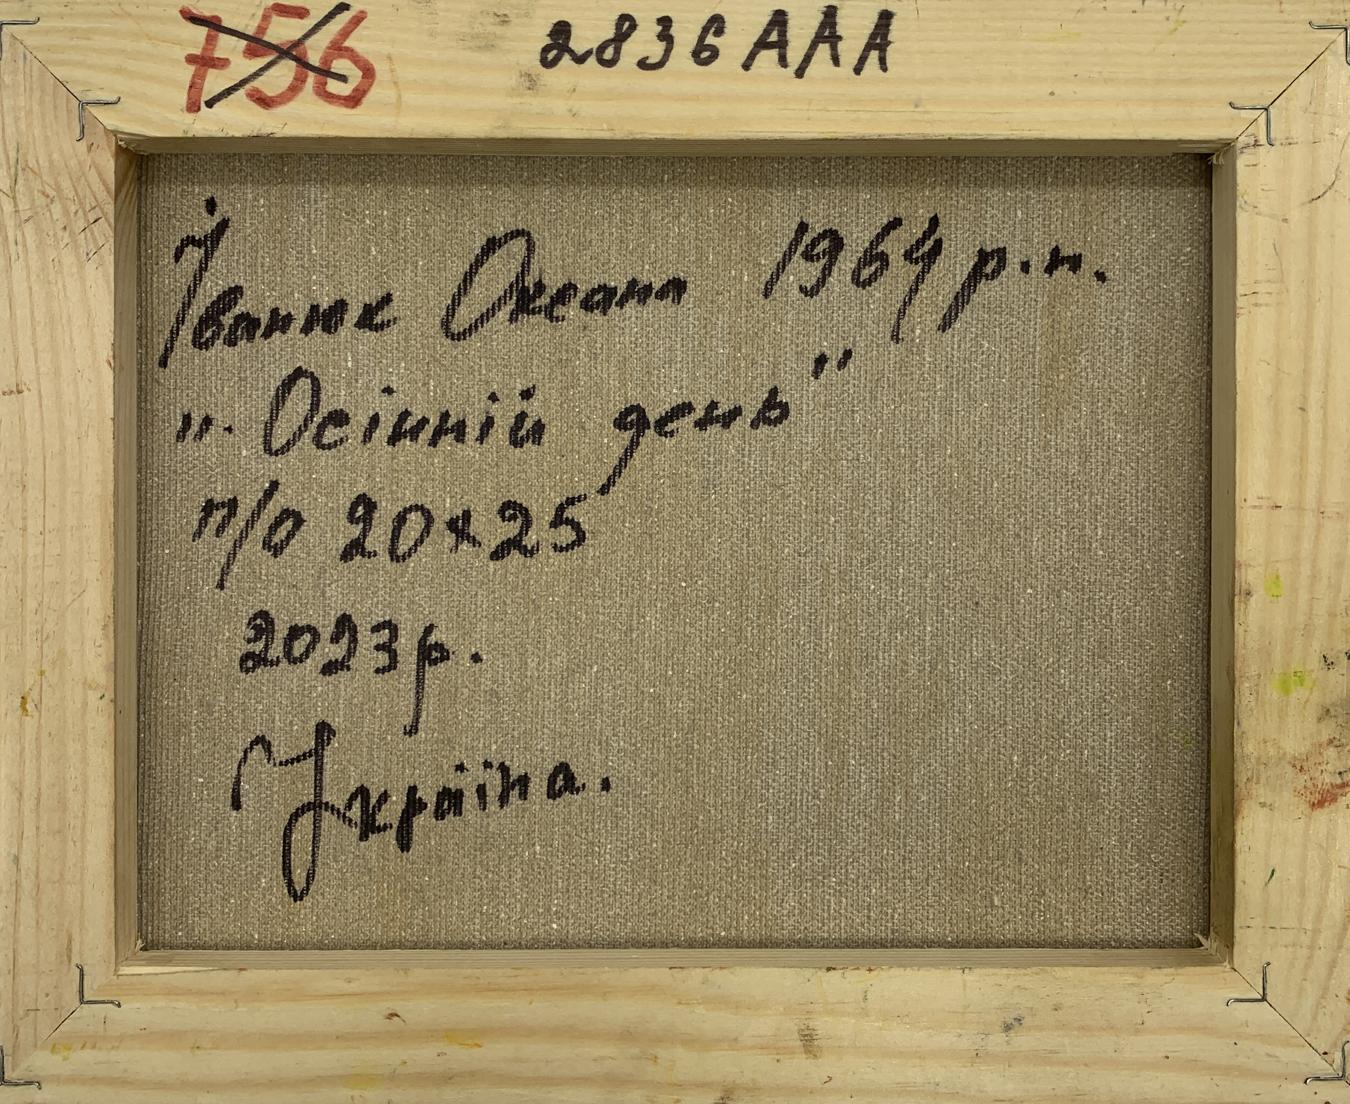 756 2836 AAA
Іванюк Океана 1964 р.н.
"Осінній день"
п/о 20х25
2023р.
Україна.